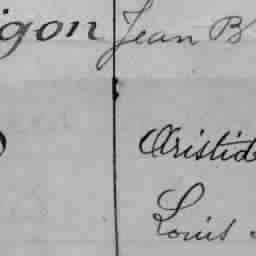 igon Jean B
Aristid
Louis